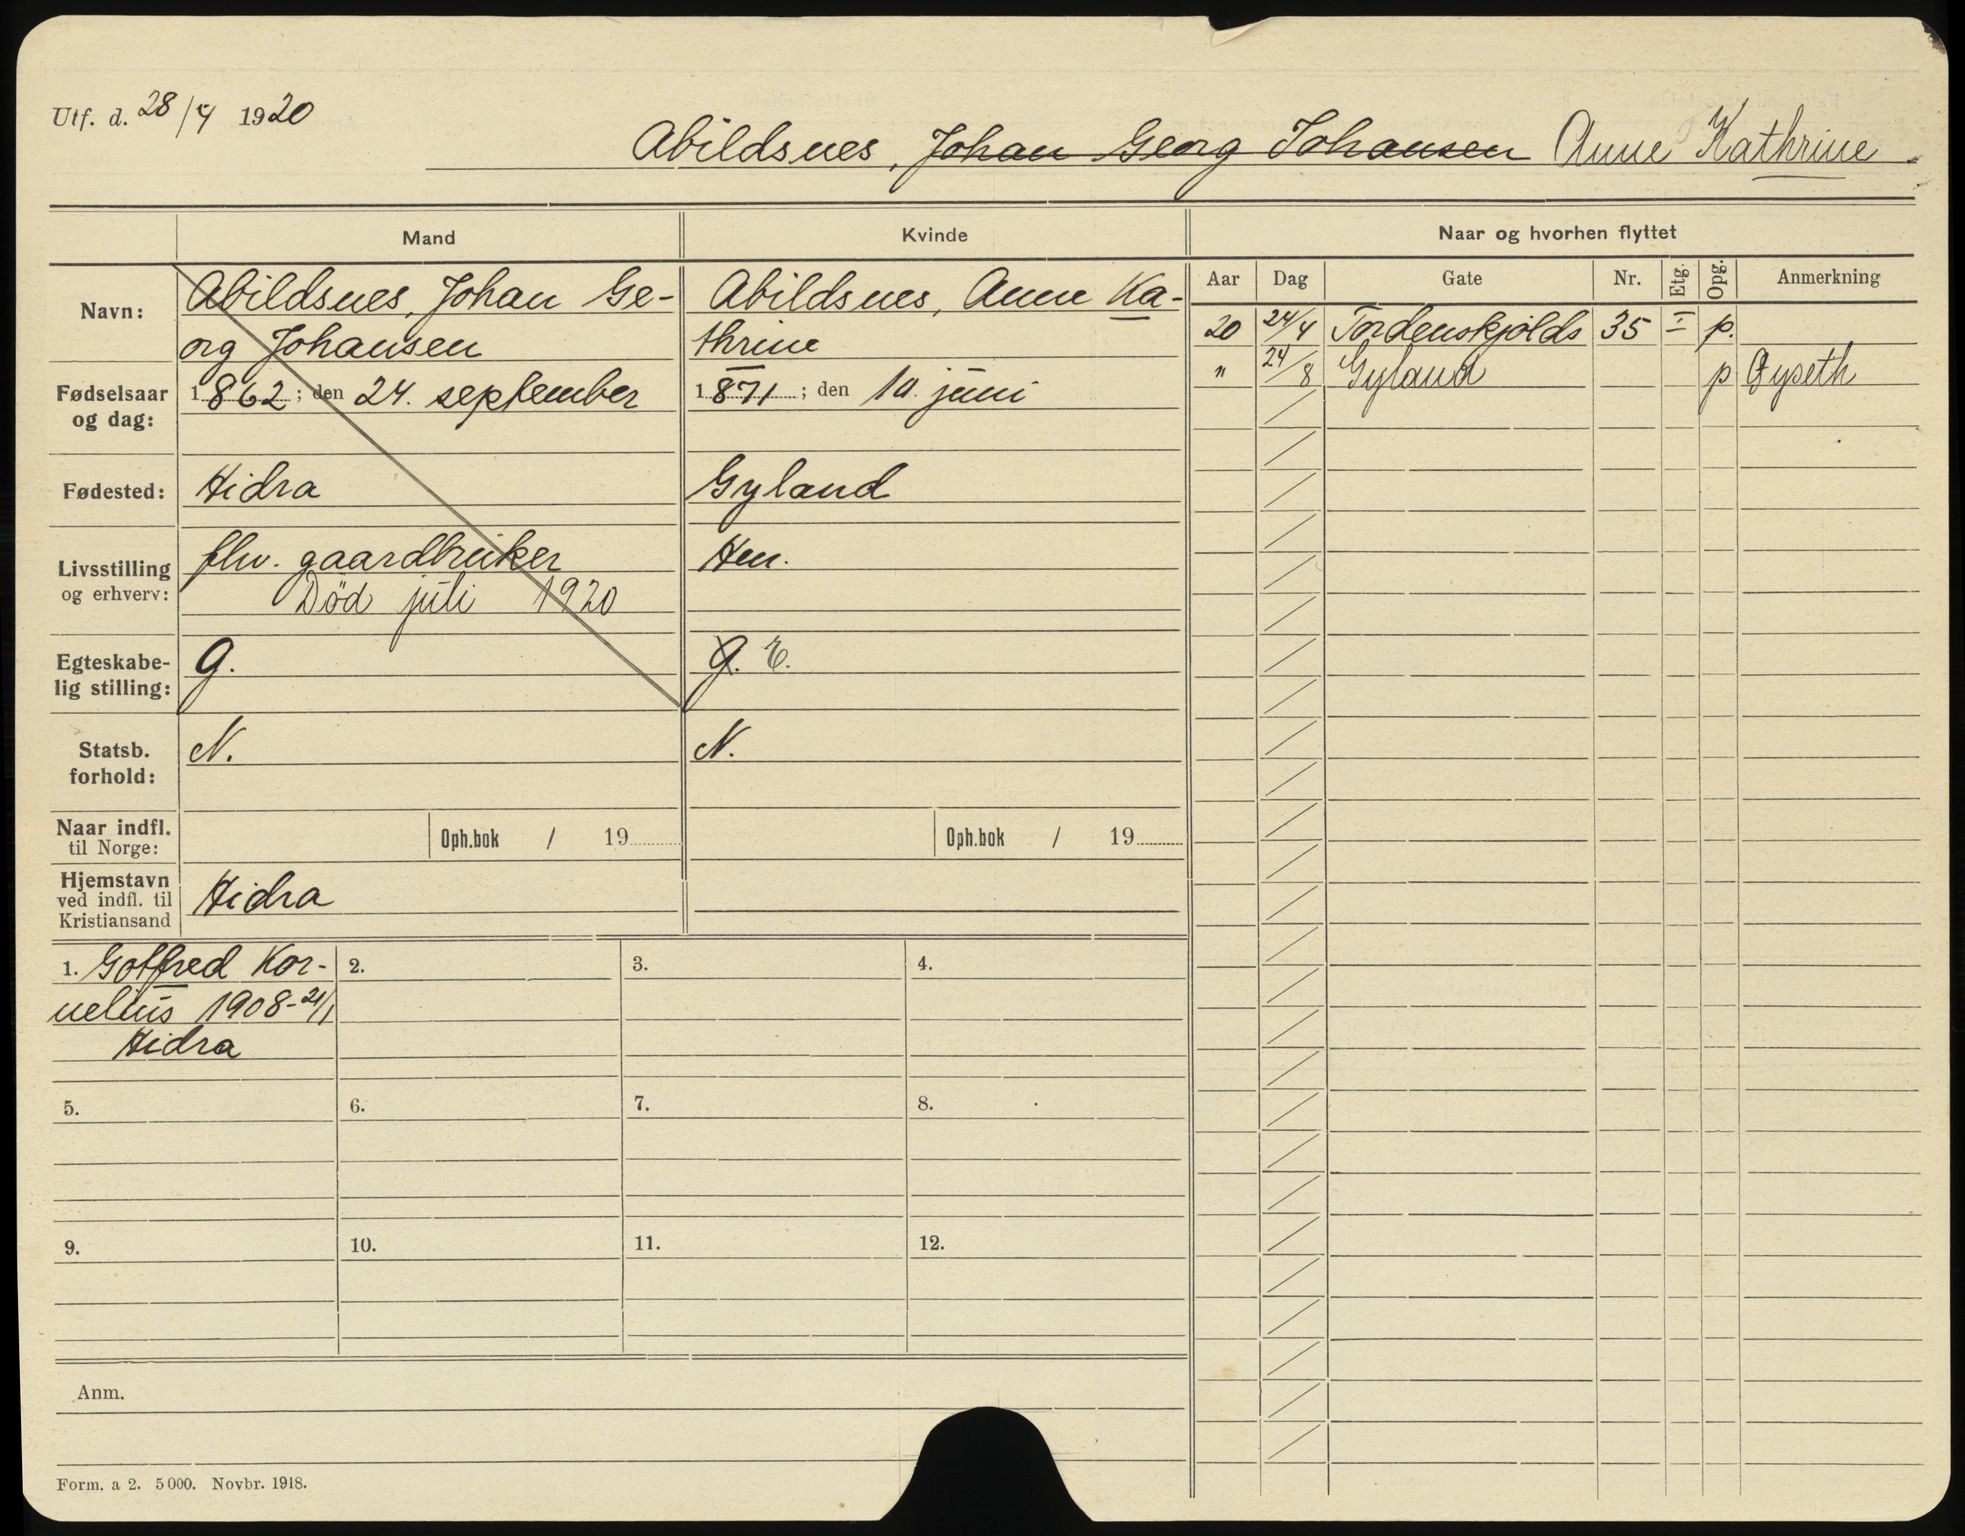 Utf. d. 28/4 1920
Abildsnes, Johan Georg Johansen Anne Kathrine
Mand
Kvinde
Naar og hvorhen flyttet
Navn:
Abildsnes, Johan Ge-
org Johansen
Abildsnes, Anne Ka-
thrine
Fødselsaar
og dag:
1862; den 24. september
1871; den 10. juni
Fødested:
Hidra
Gyland
Livsstilling
og erhverv:
fhv. gaardbruker
Död juli 1920
Hm.
Egteskabe-
lig stilling:
g.
g. E.
Statsb.
forhold:
N.
N.
Naar indfl.
til Norge:
Oph.bok / 19
Oph.bok / 19
Hjemstavn
ved indfl. til
Kristiansand
Hidra
Aar Dag Gate Nr. Etg. Opg. Anmerkning
20 24/4 Tordenskjolds 35 p.
" 24/8 Gyland p Øyseth
1. Gotfred Kor-
nelius 1908-21/1
Hidra
2.
3.
4.
5.
6.
7.
8.
9.
10.
11.
12.
Anm.
Form. a 2. 5000. Novbr. 1918.